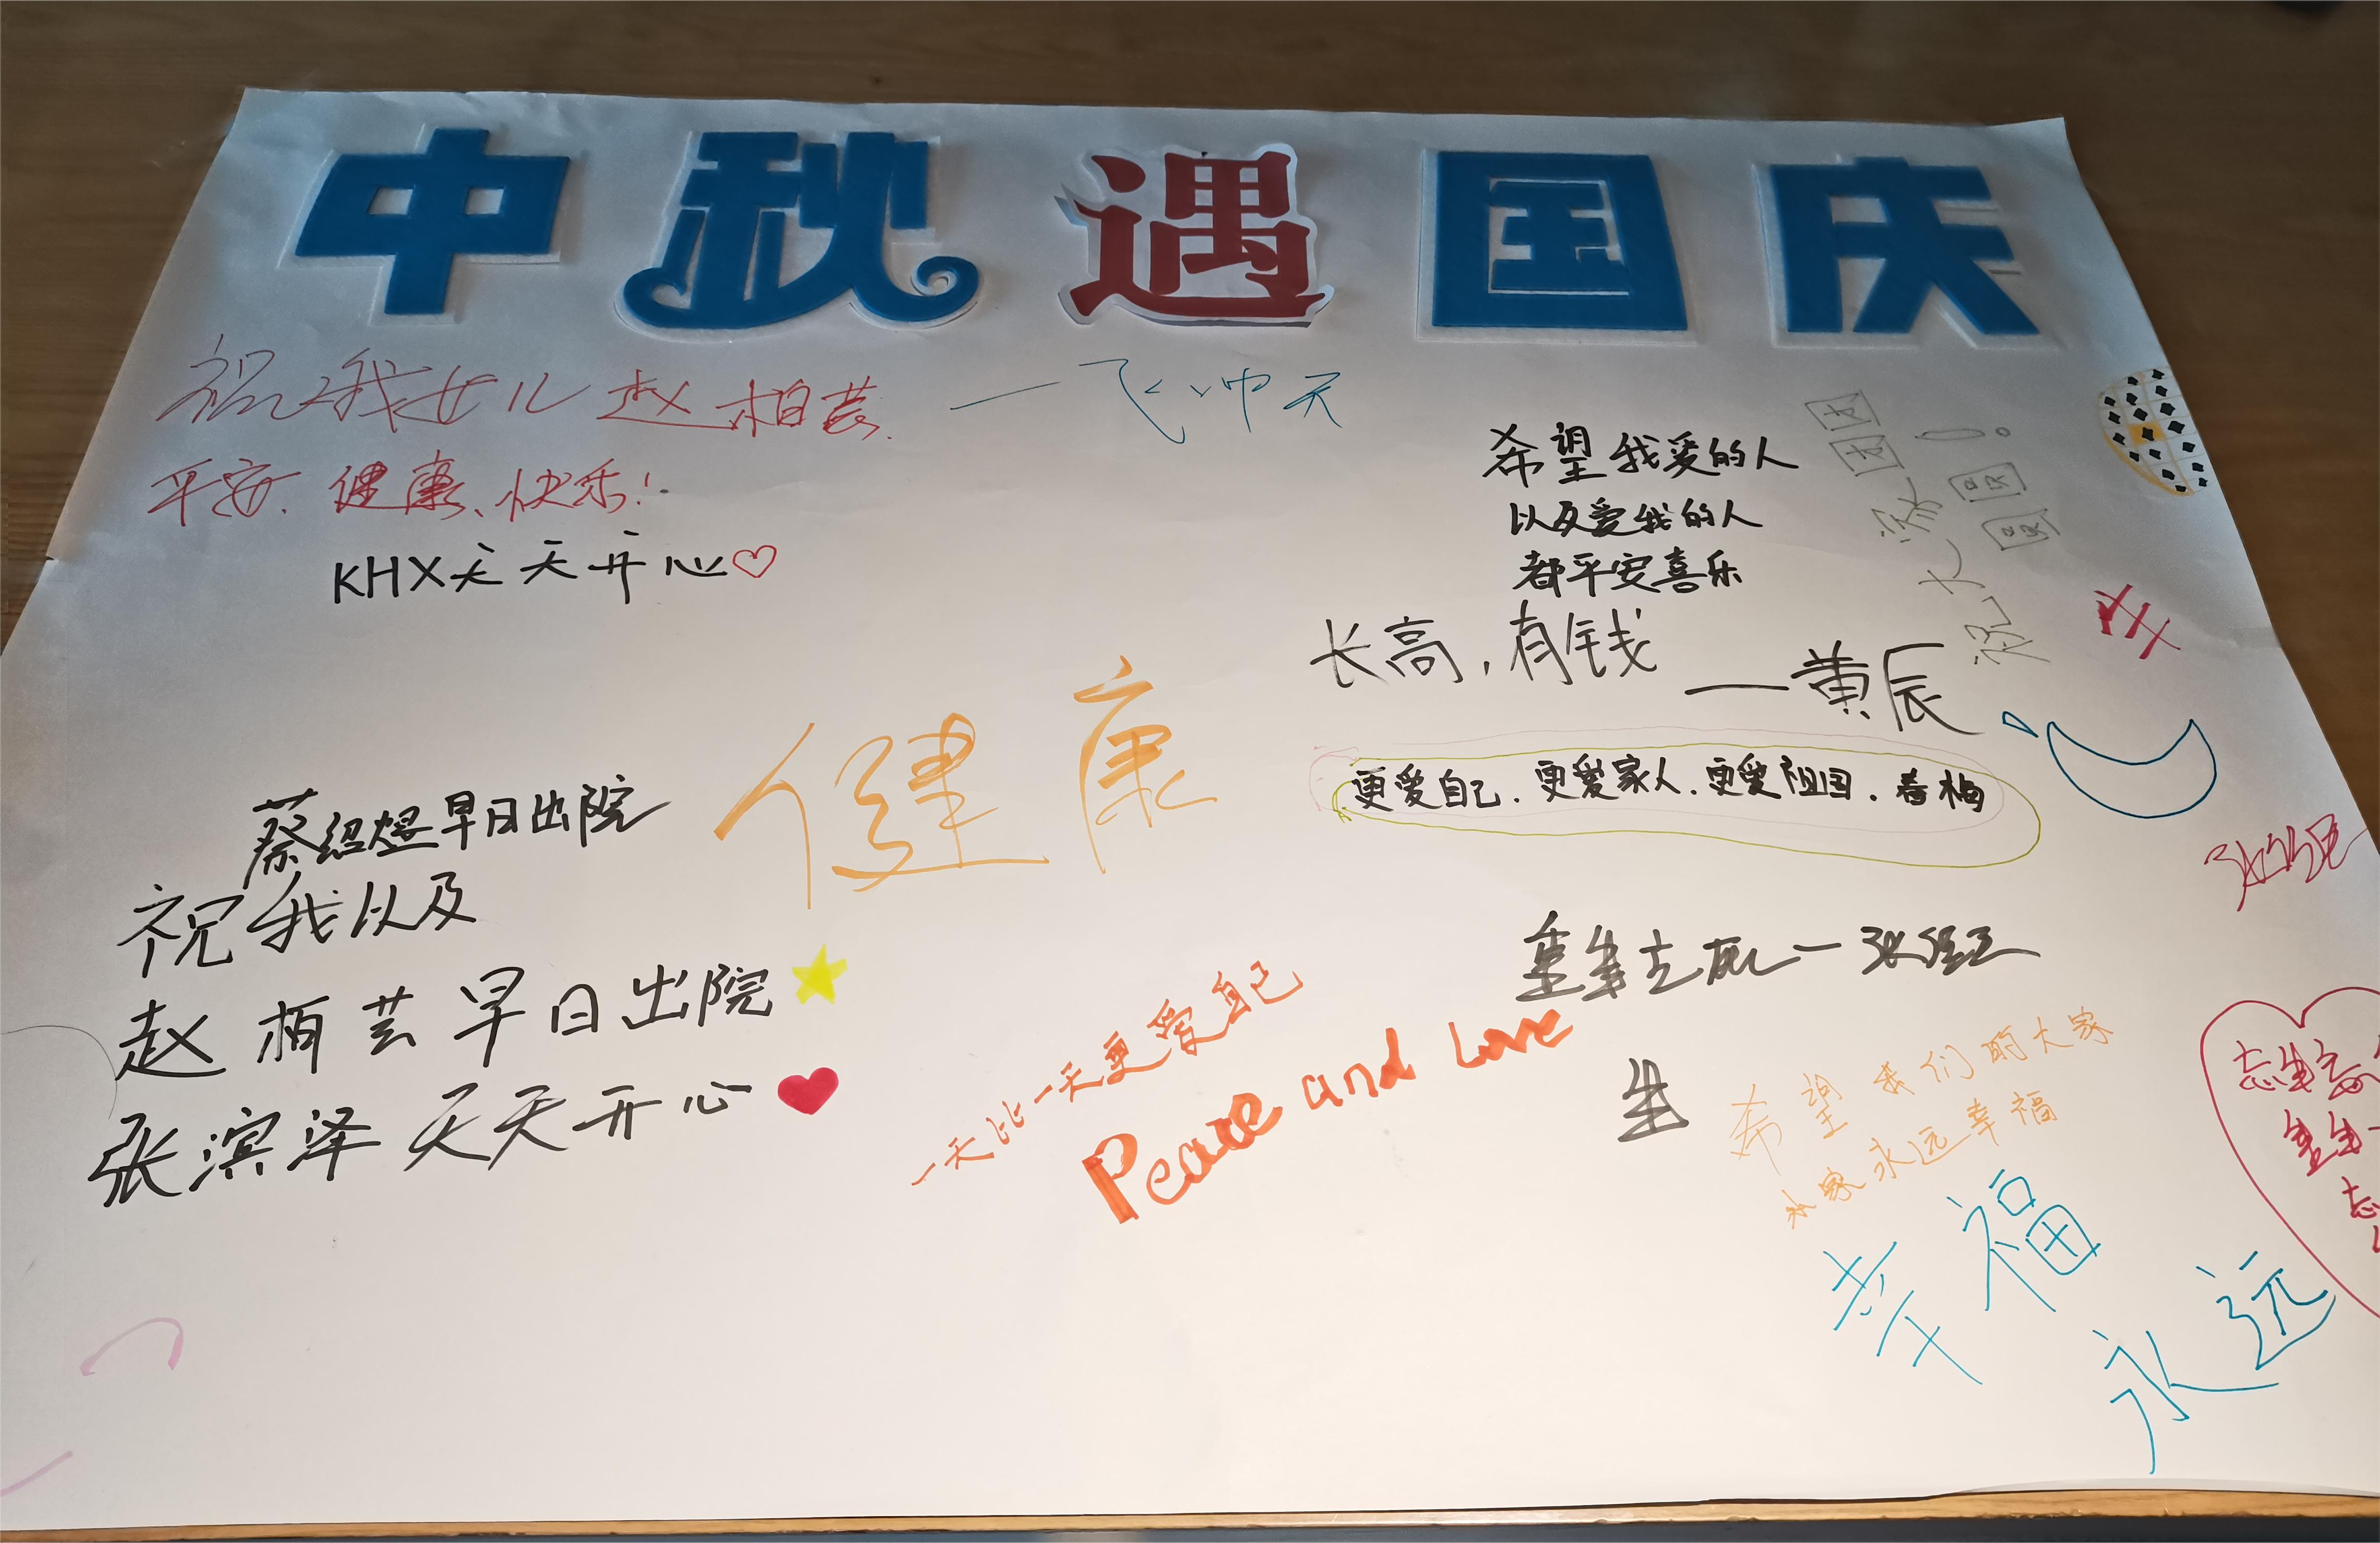 中秋遇国庆
祝我女儿赵栢芸
一飞冲天
平安、健康、快乐!
KHX天天开心
希望我爱的人
以及爱我的人
都平安喜乐
祝大家
长高,有钱
——黄辰
健康
更爱自己.更爱家人.更爱祖国.春梅
蔡绍煜早日出院
祝我以及
赵栢芸早日出院
张滨泽天天开心
一天比一天更爱自己
Peace and Love
生
希望我们的大家
小家永远幸福
幸福
永远